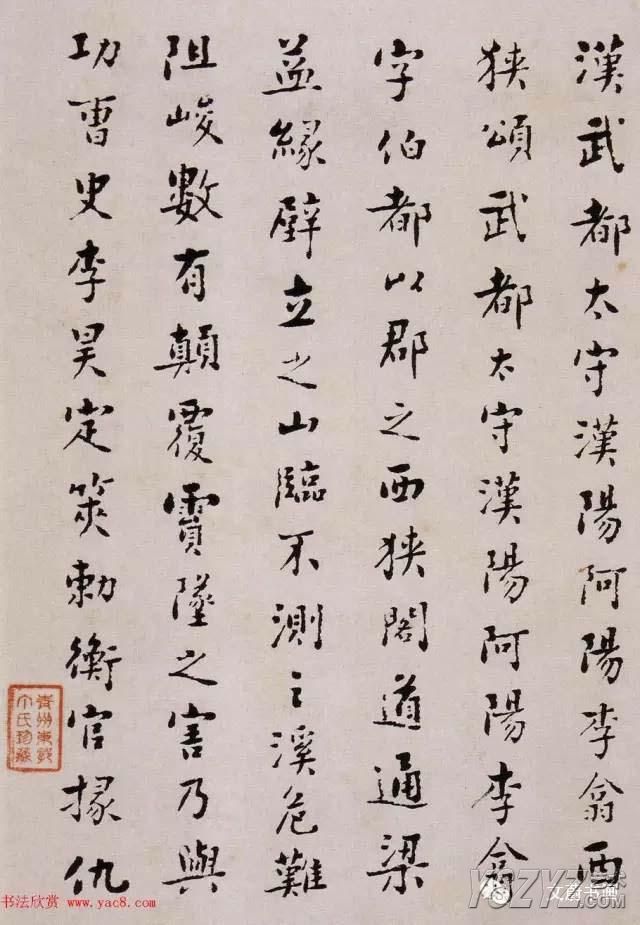 漢武都太守漢陽阿陽李翕西
狹頌武都太守漢陽阿陽李翕
字伯都以郡之西狹閣道通梁
益緣壁立之山臨不測之溪危難
阻峻數有顛覆霣墜之害乃與
功曹史李昊定筞勅衡官掾仇
书法欣赏 www.yac8.com
YOZYZ艺术
文斋书画